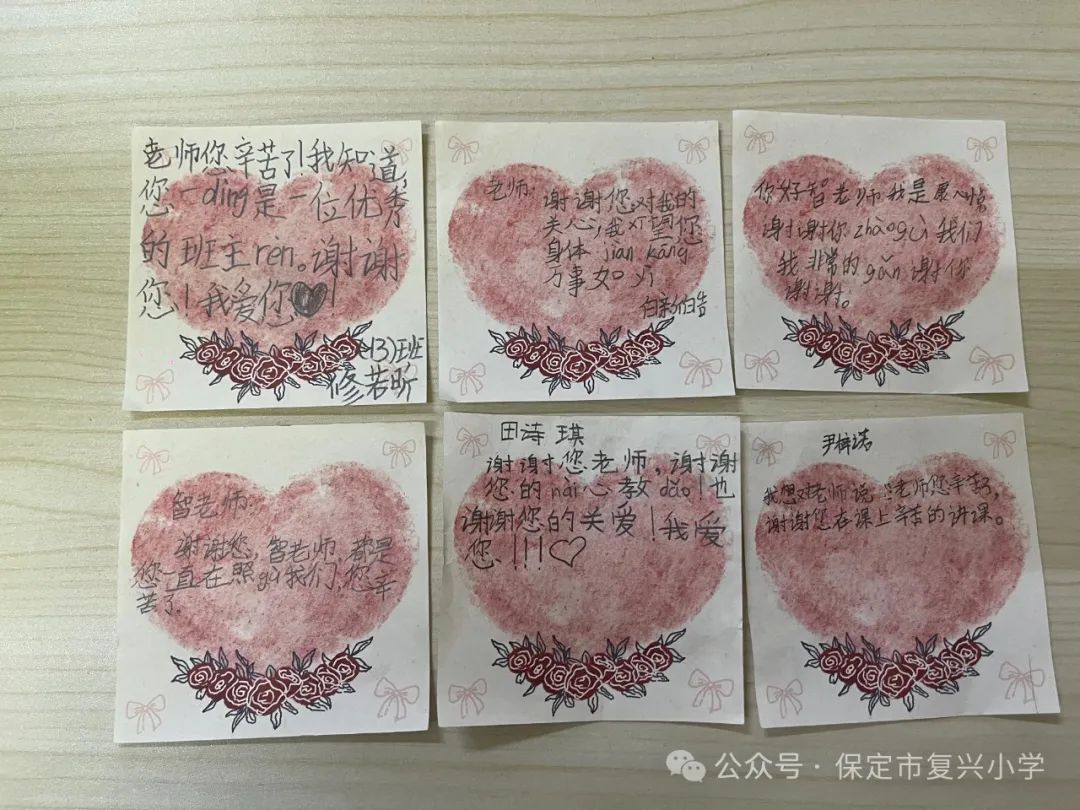 老师您辛苦了!我知道,
您一dìng是一位优秀
的班主rèn。谢谢
您!我爱您!
(3)班
修若昕
老师:
谢谢您对我的
关心,我希望您
身体 jiàn kāng
万事如yì
你好智老师我是
谢谢你zhàogù我们
我非常的gǎn谢你
谢谢。
智老师:
谢谢您,智老师,都是
您一直在照gù我们,您辛
苦了
田诗琪
谢谢您老师,谢谢
您的nài心教dǎo!也
谢谢您的关爱!我爱
您!!!!
尹梓诺
我想对老师说:老师您辛苦了,
谢谢您在课上辛苦的讲课。
公众号·保定市复兴小学